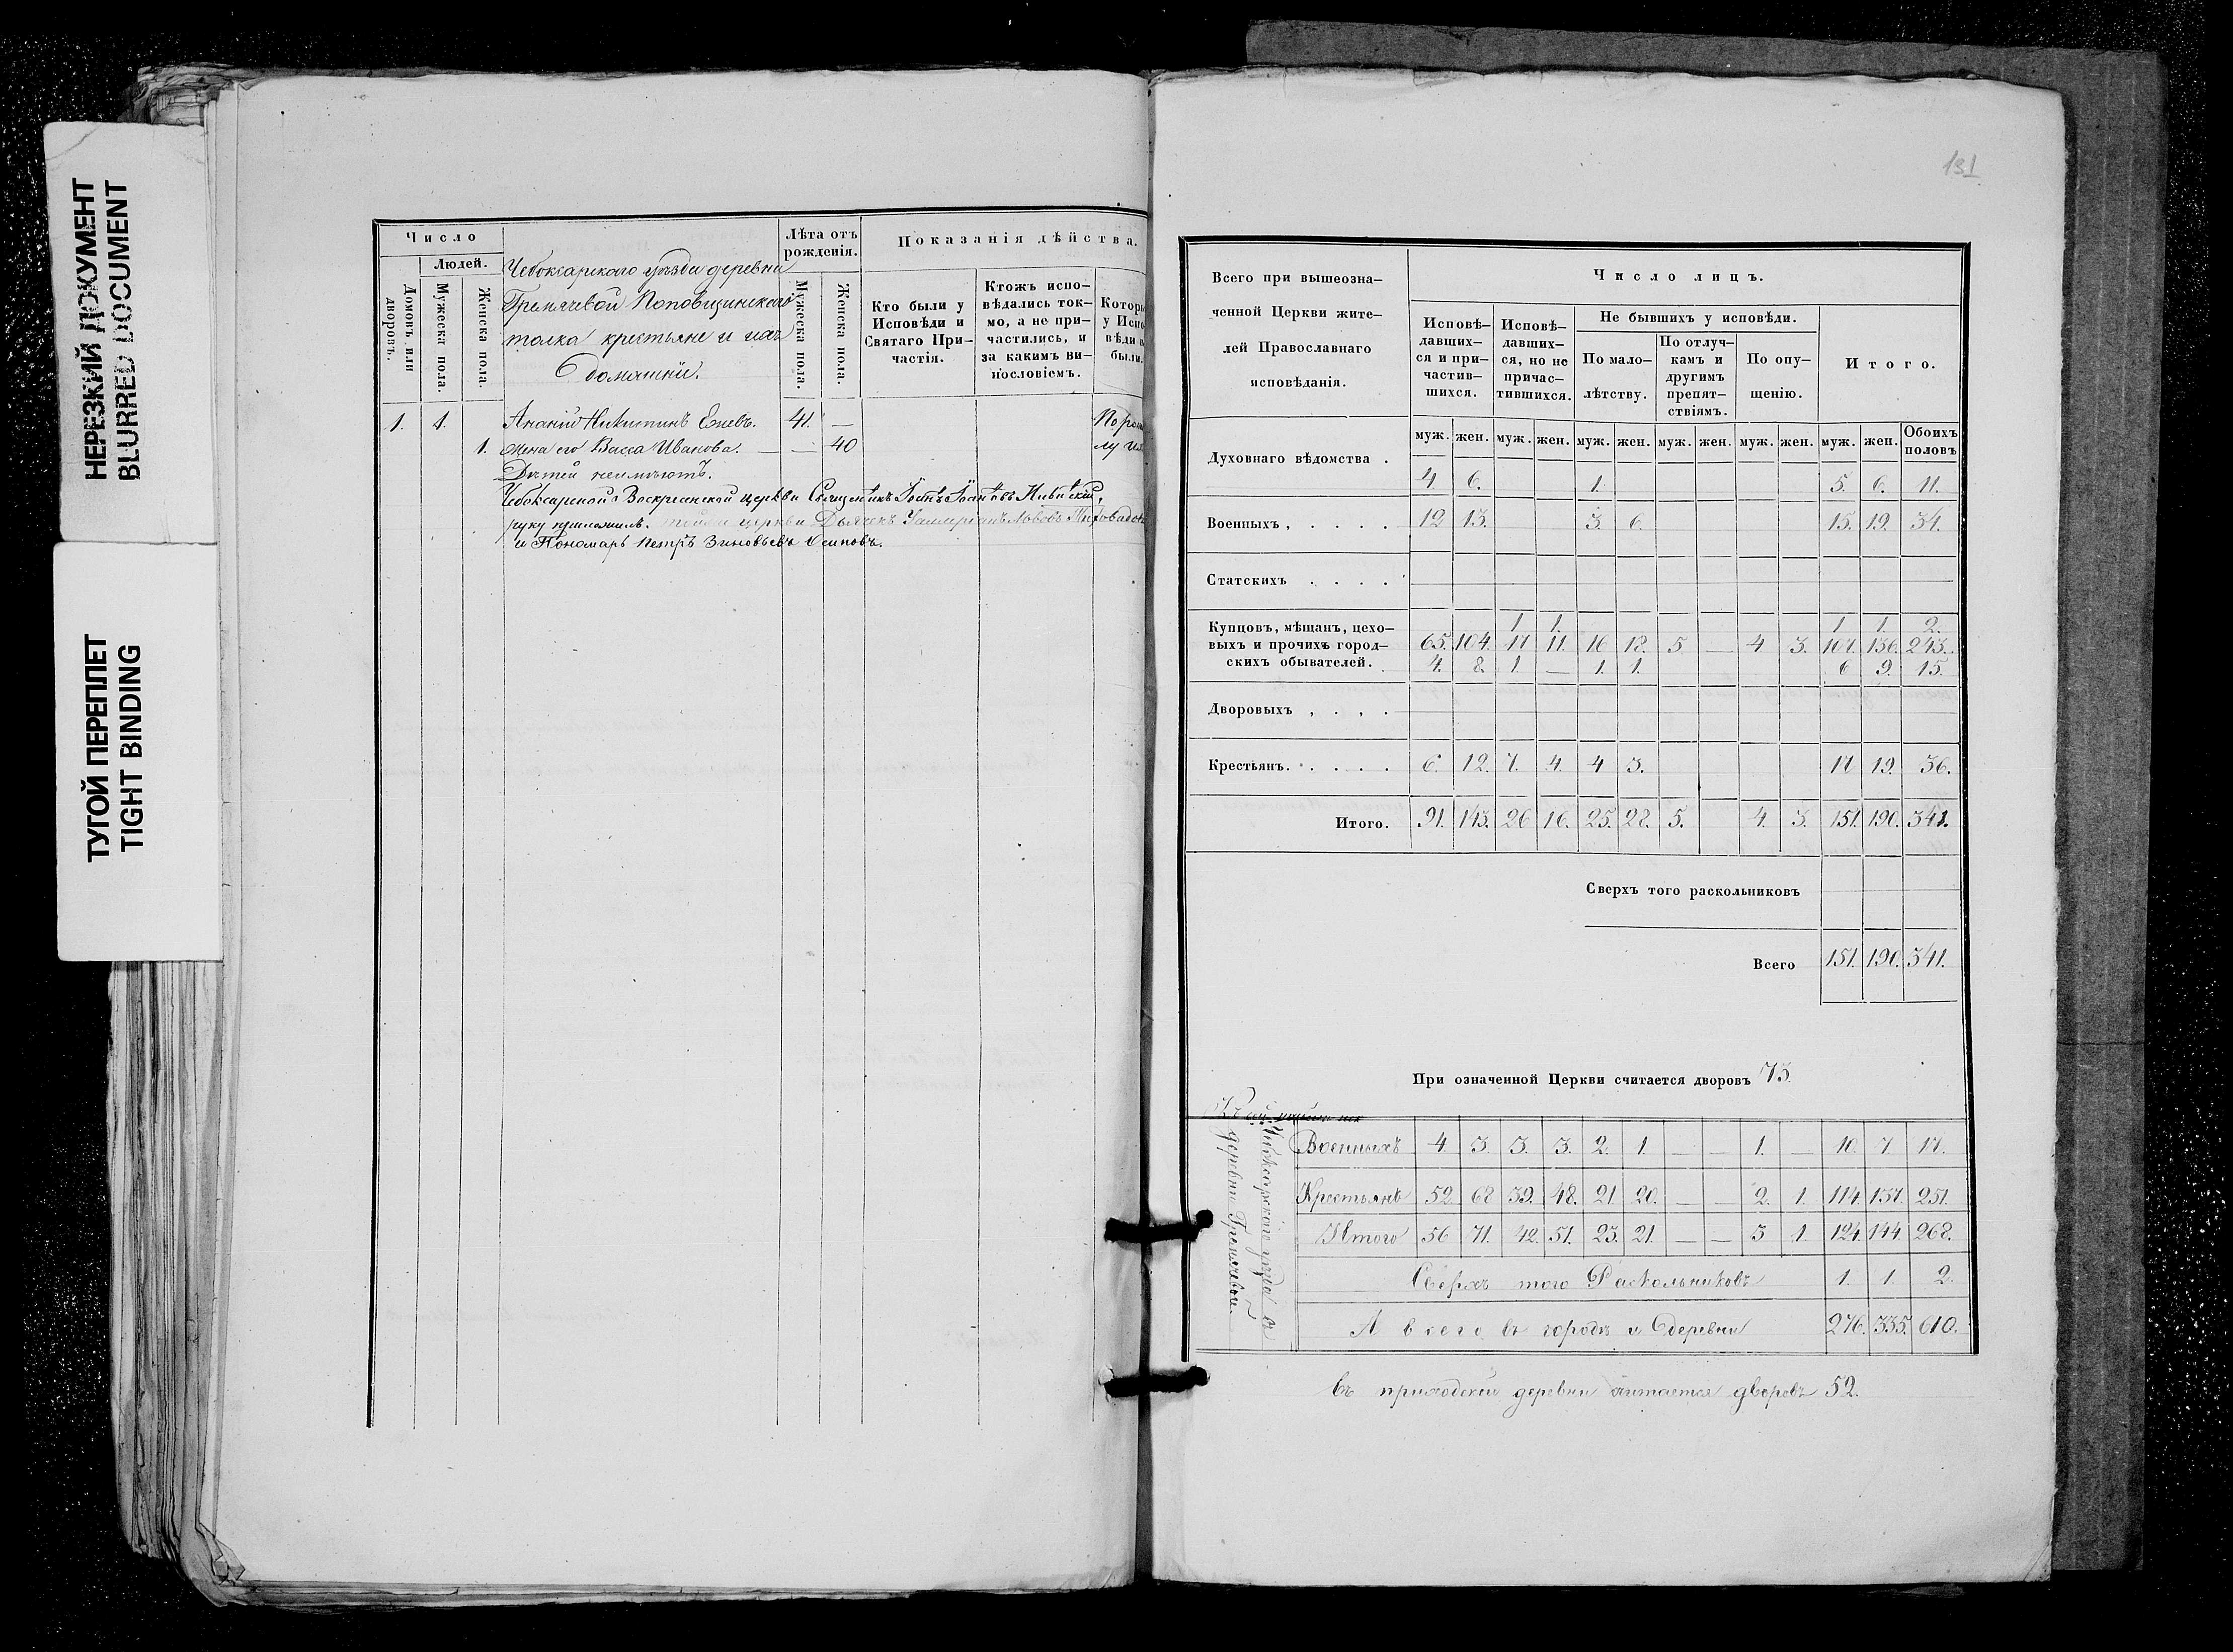 НЕРЕЗКИЙ ДОКУМЕНТ
BLURRED DOCUMENT
ТУГОЙ ПЕРЕПЛЕТ
TIGHT BINDING
Число
Людей.
Домовъ, или дворовъ.
Мужеска пола.
Женска пола.
Чебоксарскаго уѣзда деревни
Гремячевой Поповщинскаго
толка крестьяне и ихъ
домашніи.
Лѣта отъ
рожденія.
Мужеска пола.
Женска пола.
Показанія дѣйства.
Кто были у
Исповѣди и
Святаго При-
частія.
Ктожъ испо-
вѣдались ток-
мо, а не при-
частились, и
за какимъ ви-
нословіемъ.
Которы
у Испо
вѣди н
были.
1. 1. Ананій Никитинъ Елевъ. 41. —
1. жена его Васса Иванова. — — 40
Дѣтей неимѣютъ.
Чебоксарской Воскресенской церкви Священникъ
руку приложилъ. тойже церкви Дьячекъ
и Пономарь Петръ Зиновьевъ Осиповъ.
131
Всего при вышеозна-
ченной Церкви жите-
лей Православнаго
исповѣданія.
Число лицъ.
Исповѣ-
давших-
ся и при-
частив-
шихся.
Исповѣ-
давших-
ся, но не
причас-
тившихся.
Не бывшихъ у исповѣди.
По мало-
лѣтству.
По отлуч-
камъ и
другимъ
препят-
ствіямъ.
По опу-
щенію.
Итого.
муж. жен. муж. жен. муж. жен. муж. жен. муж. жен. муж. жен. Обоихъ
половъ
Духовнаго вѣдомства .
4 6. 1. 5. 6. 11.
Военныхъ , . . . . 12 13. 3. 6. 15. 19. 34.
Статскихъ . . . .
1 1. 1 1. 2.
Купцовъ, мѣщанъ, цехо-
выхъ и прочихъ город- 65. 104. 17 11. 16 18. 5 — 4 3. 107. 136. 243.
скихъ обывателей. 4. 8. 1. — 1. 1. 6 9. 15.
Дворовыхъ , . , .
Крестьянъ. . . . . 6. 12. 7. 4. 4 3. 17 19. 36.
Итого. 91. 143. 26 16. 25. 28. 5. 4. 3. 151. 190. 341.
Сверхъ того раскольниковъ
Всего 151. 190. 341.
При означенной Церкви считается дворовъ 73.
Чебоксарскаго уѣзда въ
деревни Гремячевой
Военныхъ 4. 3. 3. 3. 2. 1. — — 1. — 10. 7. 17.
Крестьянъ 52. 68 39. 48. 21 20. — — 2. 1. 114. 137. 251.
Итого 56 71. 42. 51. 23. 21. — — 3 1. 124. 144. 268.
Сверхъ того Раскольниковъ 1. 1. 2.
А всего въ городѣ и деревни 276. 335. 610.
въ приходской деревни читается дворовъ 52.